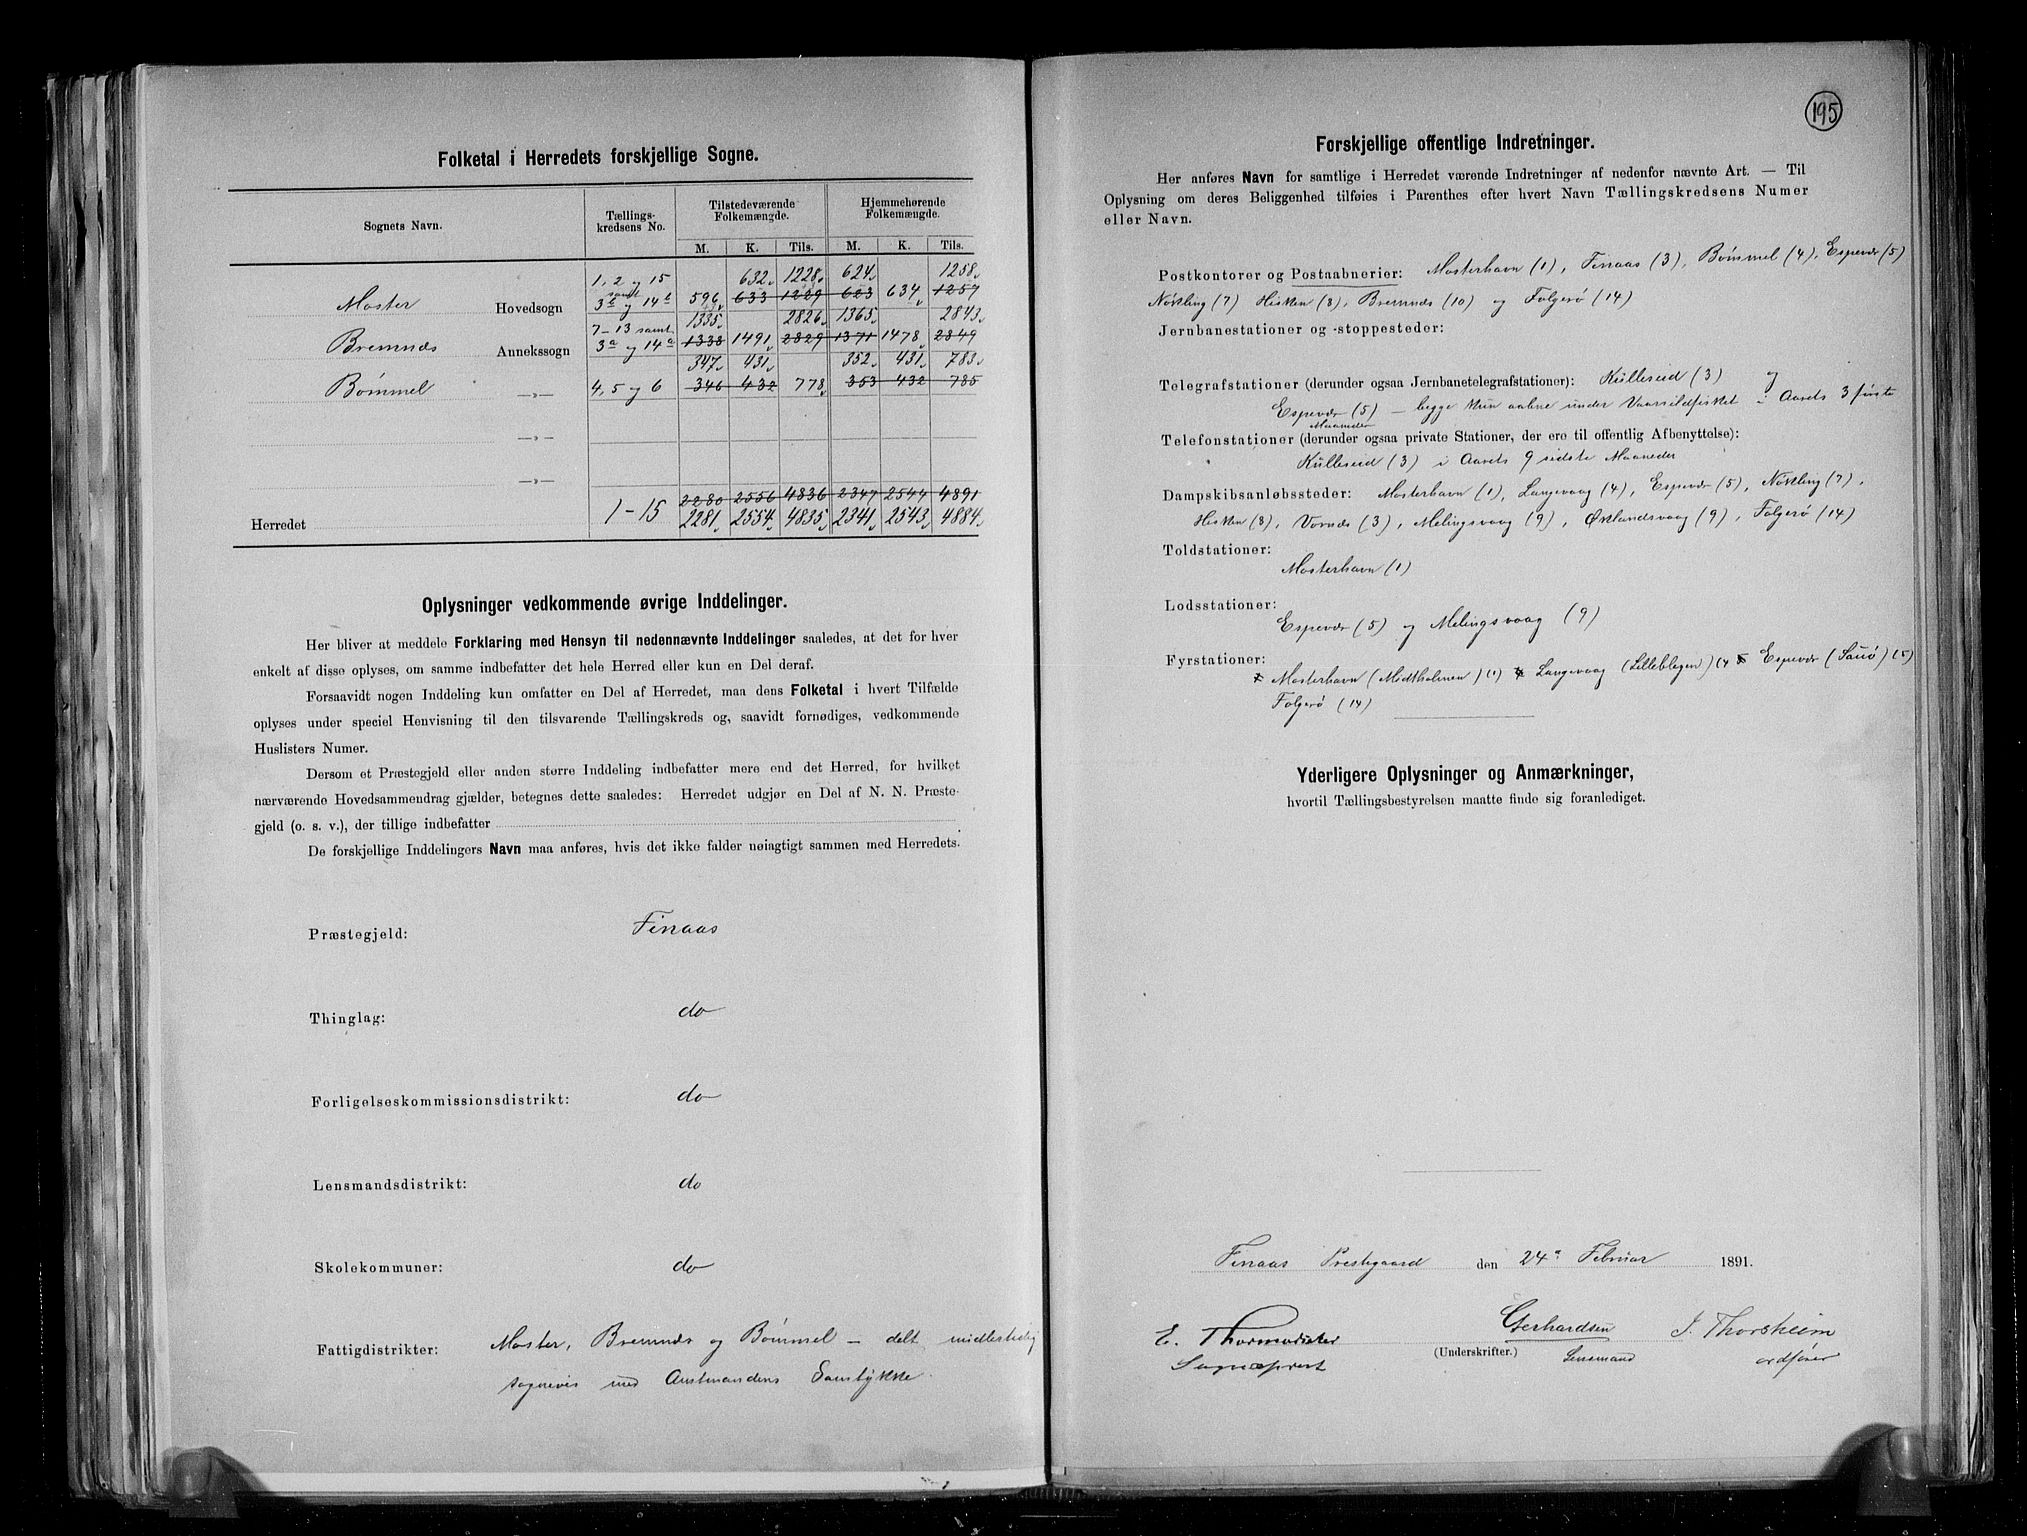 Folketal i Herredets forskjellige Sogne.
Sognets Navn. Tællings-kredsens No. Tilstedeværende Folkemængde. Hjemmehørende Folkemængde.
M. K. Tils. M. K. Tils.
1, 2 og 15 632 1228 624 1258
Moster Hovedsogn samt 3b og 14b 596 633 1229 623 634 1257
7-13 samt 1335 2826 1365 2843
Bremnæs Annekssogn 3a og 14a 1338 1491 2829 1371 1478 2849
347 431 352 431 783
Bømmel —»— 4, 5 og 6 346 432 778 353 432 785
—»—
—»—
2280 2556 4836 2347 2544 4891
Herredet 1-15 2281 2554 4835 2341 2543 4884
Oplysninger vedkommende øvrige Inddelinger.
Her bliver at meddele Forklaring med Hensyn til nedennævnte Inddelinger saaledes, at det for hver
enkelt af disse oplyses, om samme indbefatter det hele Herred eller kun en Del deraf.
Forsaavidt nogen Inddeling kun omfatter en Del af Herredet, maa dens Folketal i hvert Tilfælde
oplyses under speciel Henvisning til den tilsvarende Tællingskreds og, saavidt fornødiges, vedkommende
Huslisters Numer.
Dersom et Præstegjeld eller anden større Inddeling indbefatter mere end det Herred, for hvilket
nærværende Hovedsammendrag gjælder, betegnes dette saaledes: Herredet udgjør en Del af N. N. Præste-
gjeld (o. s. v.), der tillige indbefatter
De forskjellige Inddelingers Navn maa anføres, hvis det ikke falder nøiagtigt sammen med Herredets.
Præstegjeld: Finaas
Thinglag: do
Forligelseskommissionsdistrikt: do
Lensmandsdistrikt: do
Skolekommuner: do
Fattigdistrikter: Moster, Bremnæs og Bømmel — delt midlertidig
sognevis med Amtmandens Samtykke.
195
Forskjellige offentlige Indretninger.
Her anføres Navn for samtlige i Herredet værende Indretninger af nedenfor nævnte Art. — Til
Oplysning om deres Beliggenhed tilføies i Parenthes efter hvert Navn Tællingskredsens Numer
eller Navn.
Postkontorer og Postaabnerier: Mosterhavn (1), Finaas (3), Bømmel (4), Espevær (5)
Nøkling (7) Hisken (8), Bremnæs (10) og Folgerø (14)
Jernbanestationer og -stoppesteder:
Telegrafstationer (derunder ogsaa Jernbanetelegrafstationer): Kulleseid (3) og
Espevær (5) — begge kun aabne under Vaarsildfisket i Aarets 3 første
Maaneder
Telefonstationer (derunder ogsaa private Stationer, der ere til offentlig Afbenyttelse):
Kulleseid (3) i Aarets 9 sidste Maaneder
Dampskibsanløbssteder: Mosterhavn (1), Langevaag (4), Espevær (5), Nøkling (7),
Hisken (8), Vornæs (3), Melingsvaag (9), Øklandsvaag (9), Folgerø (14)
Toldstationer:
Mosterhavn (1)
Lodsstationer:
Espevær (5) og Melingsvaag (9)
Fyrstationer:
Mosterhavn (Midtholmen) (1) Langevaag (Lilleblegen) (4 Espevær (Sauø) (5)
Folgerø (14)
Yderligere Oplysninger og Anmærkninger,
hvortil Tællingsbestyrelsen maatte finde sig foranlediget.
Finaas Prestegaard den 24de Februar 1891.
E. Thormodsæter Gerhardsen J. Thorsheim
(Underskrifter.)
Sogneprest Lensmand ordfører